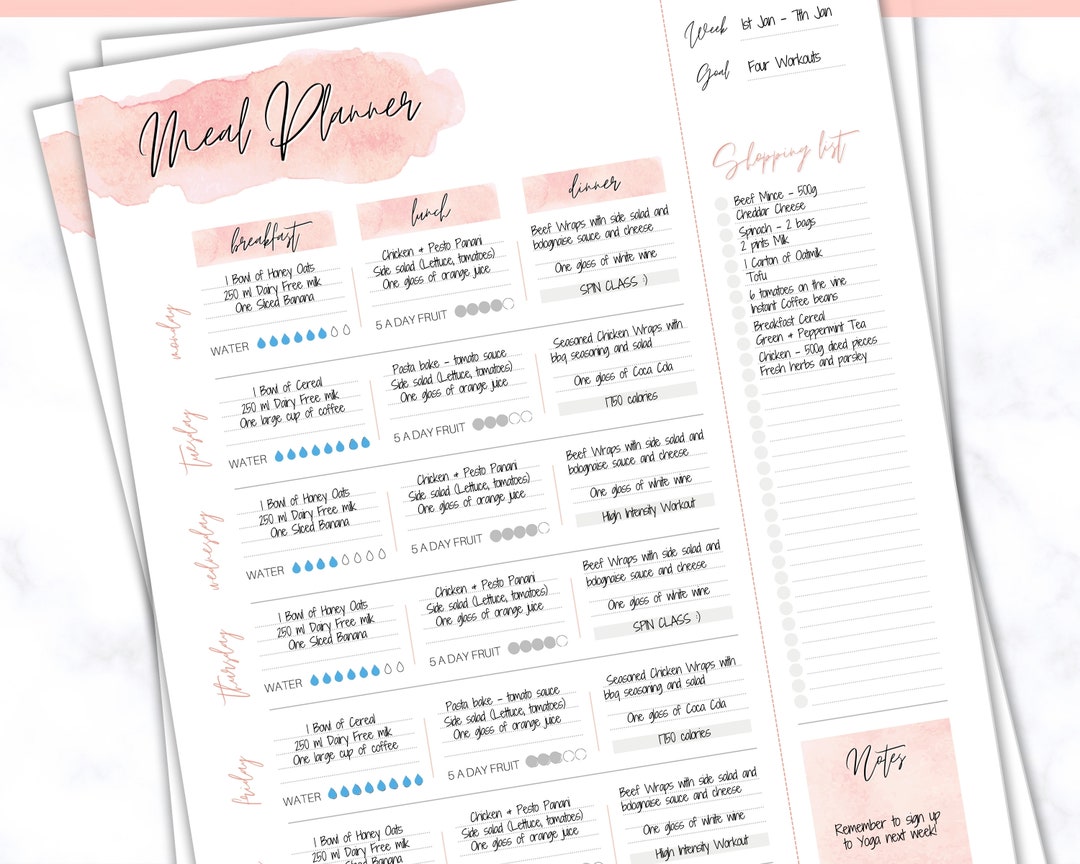 Meal Planner
Week 1st Jan - 7th Jan
Goal Four Workouts
breakfast
lunch
dinner
monday
1 Bowl of Honey Oats
250 ml Dairy Free milk
One Sliced Banana
WATER
Chicken + Pesto Panani
Side salad (Lettuce, tomatoes)
One glass of orange juice
5 A DAY FRUIT
Beef Wraps with side salad and
bolognaise sauce and cheese
One glass of white wine
SPIN CLASS :)
tuesday
1 Bowl of Cereal
250 ml Dairy Free milk
One large cup of coffee
WATER
Pasta bake - tomato sauce
Side salad (Lettuce, tomatoes)
One glass of orange juice
5 A DAY FRUIT
Seasoned Chicken Wraps with
bbq seasoning and salad
One glass of Coca Cola
1750 calories
wednesday
1 Bowl of Honey Oats
250 ml Dairy Free milk
One Sliced Banana
WATER
Chicken + Pesto Panani
Side salad (Lettuce, tomatoes)
One glass of orange juice
5 A DAY FRUIT
Beef Wraps with side salad and
bolognaise sauce and cheese
One glass of white wine
High Intensity Workout
thursday
1 Bowl of Honey Oats
250 ml Dairy Free milk
One Sliced Banana
WATER
Chicken + Pesto Panani
Side salad (Lettuce, tomatoes)
One glass of orange juice
5 A DAY FRUIT
Beef Wraps with side salad and
bolognaise sauce and cheese
One glass of white wine
SPIN CLASS :)
friday
1 Bowl of Cereal
250 ml Dairy Free milk
One large cup of coffee
WATER
Pasta bake - tomato sauce
Side salad (Lettuce, tomatoes)
One glass of orange juice
5 A DAY FRUIT
Seasoned Chicken Wraps with
bbq seasoning and salad
One glass of Coca Cola
1750 calories
1 Bowl of Honey Oats
250 ml Dairy Free milk
One Sliced Banana
Chicken + Pesto Panani
Side salad (Lettuce, tomatoes)
One glass of orange juice
5 A DAY FRUIT
Beef Wraps with side salad and
bolognaise sauce and cheese
One glass of white wine
High Intensity Workout
Shopping list
Beef Mince - 500g
Cheddar Cheese
Spinach - 2 bags
2 pints Milk
1 Carton of Oatmilk
Tofu
6 tomatoes on the vine
Instant Coffee beans
Breakfast Cereal
Green + Peppermint Tea
Chicken - 500g diced pieces
Fresh herbs and parsley
Notes
Remember to sign up
to Yoga next week!